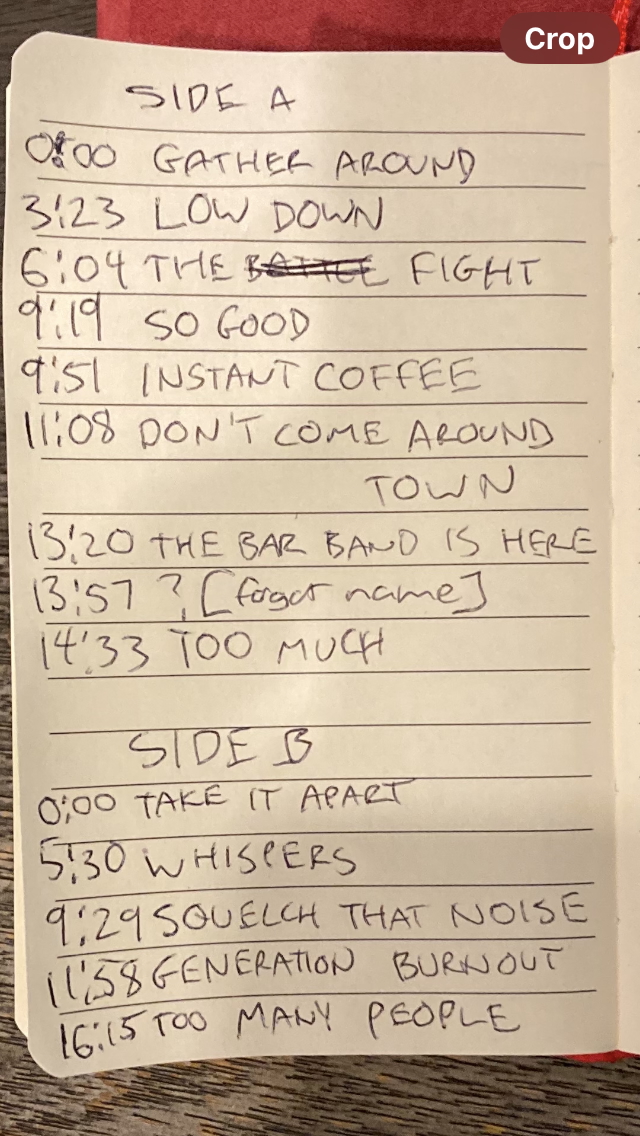 Crop
SIDE A
0:00 GATHER AROUND
3:23 LOW DOWN
6:04 THE BATTLE FIGHT
9:19 SO GOOD
9:51 INSTANT COFFEE
11:08 DON'T COME AROUND
TOWN
13:20 THE BAR BAND IS HERE
13:57 ? [forgot name]
14:33 TOO MUCH
SIDE B
0:00 TAKE IT APART
5:30 WHISPERS
9:29 SQUELCH THAT NOISE
11:58 GENERATION BURNOUT
16:15 TOO MANY PEOPLE